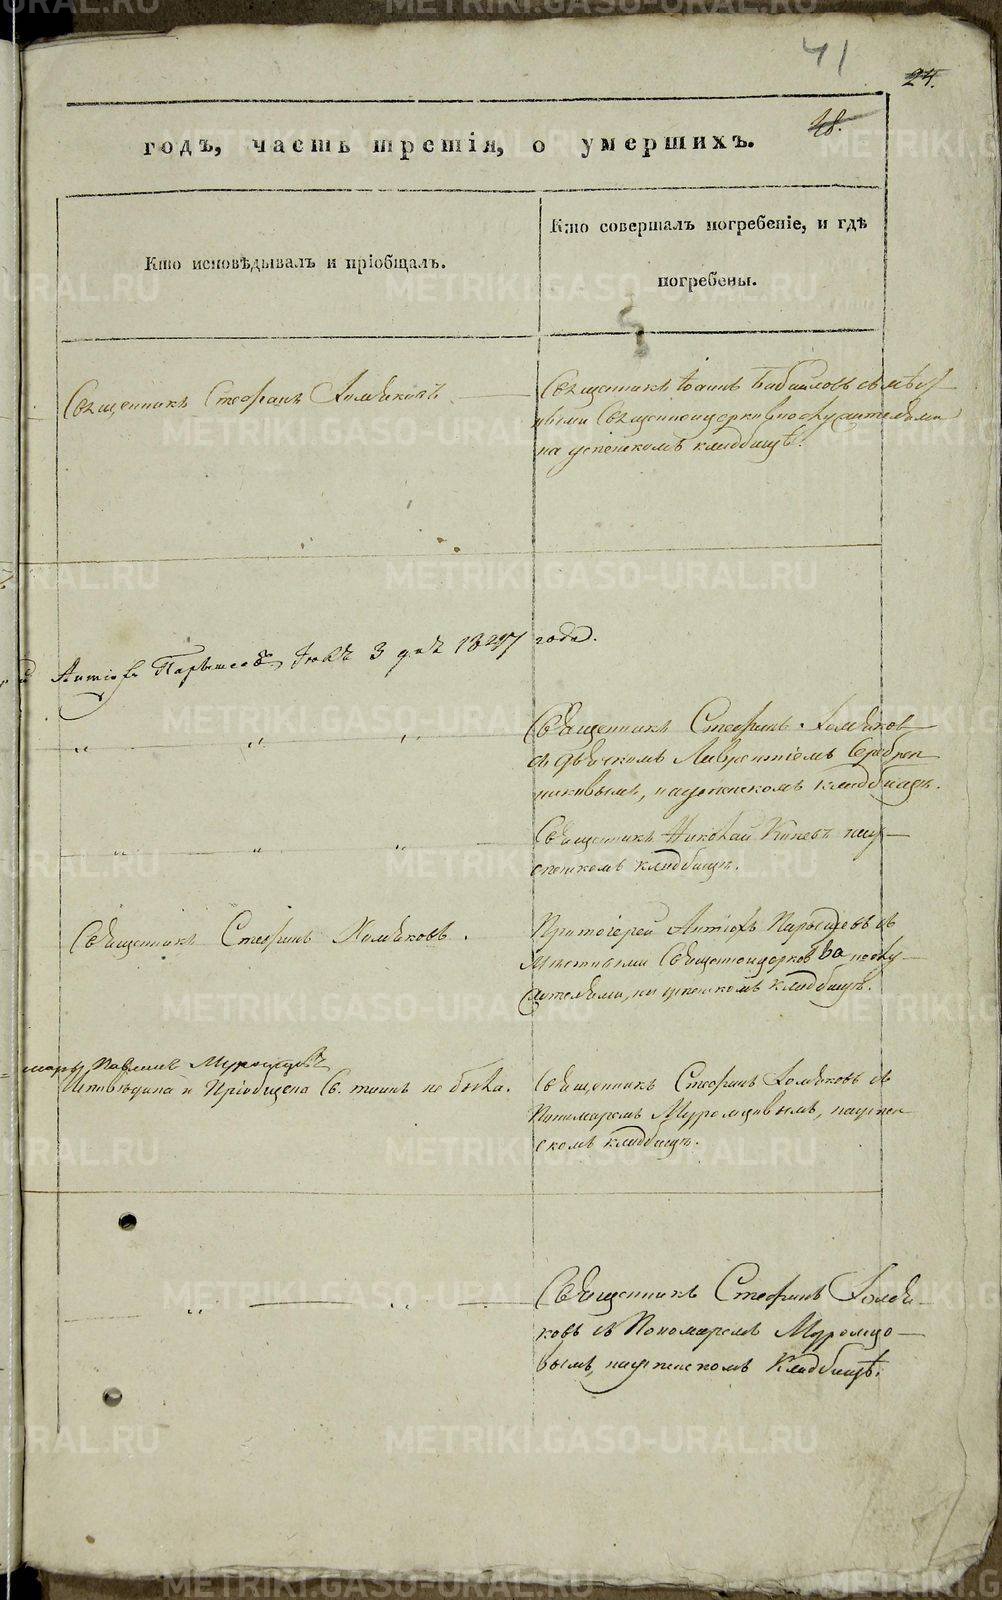 41
24.
48.
годъ, часть третія, о умершихъ.
Кто исповѣдывалъ и пріобщалъ.
Кто совершалъ погребеніе, и гдѣ
погребены.
Священникъ Стефанъ Хомяковъ
Священникъ Іоаннъ Бабайловъ съ мѣст
ными Священноцерковнослужителями
на успенскомъ кладбищѣ.
Антіохъ Парышевъ, Іюля 3 дня 1847 года.
Священникъ Стефанъ Хомяков
съ дьячкомъ Лаврентіемъ Серебрен
никовымъ, на успенскомъ кладбищѣ.
Священникъ Николай Кипевъ на ус
пенскомъ кладбищѣ.
Священникъ Стефанъ Хомяковъ.
Протоіерей Антіохъ Парышевъ съ
Мѣстными Священноцерковнослу
жителями, на успенскомъ кладбищѣ.
марь Павелъ Муромцовъ
Исповѣдана и Пріобщена Св. таинъ не была.
Священникъ Стефанъ Хомяковъ съ
Пономаремъ Муромцовымъ, на успен
скомъ кладбищѣ.
Священникъ Стефанъ Хомя
ковъ съ Пономаремъ Муромцо
вымъ, на успенскомъ Кладбищѣ.
METRIKI.GASO-URAL.RU